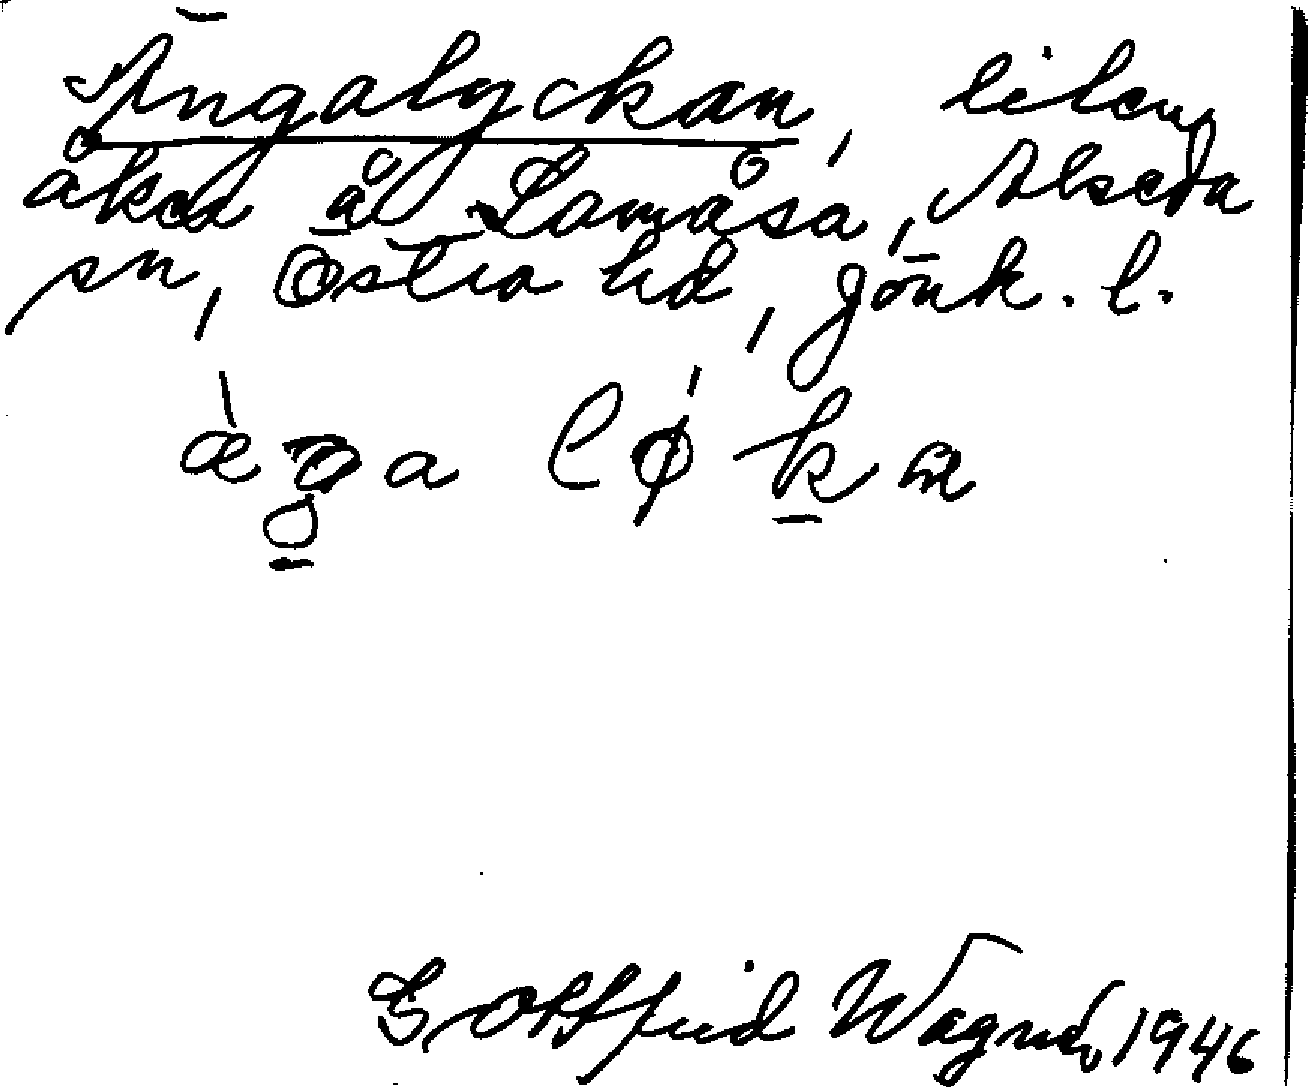 Ängalyckan, liten
åker å Lamåsa, Alseda
sn, Östra hd, Jönk. l.
Gottfrid Wagnér, 1946